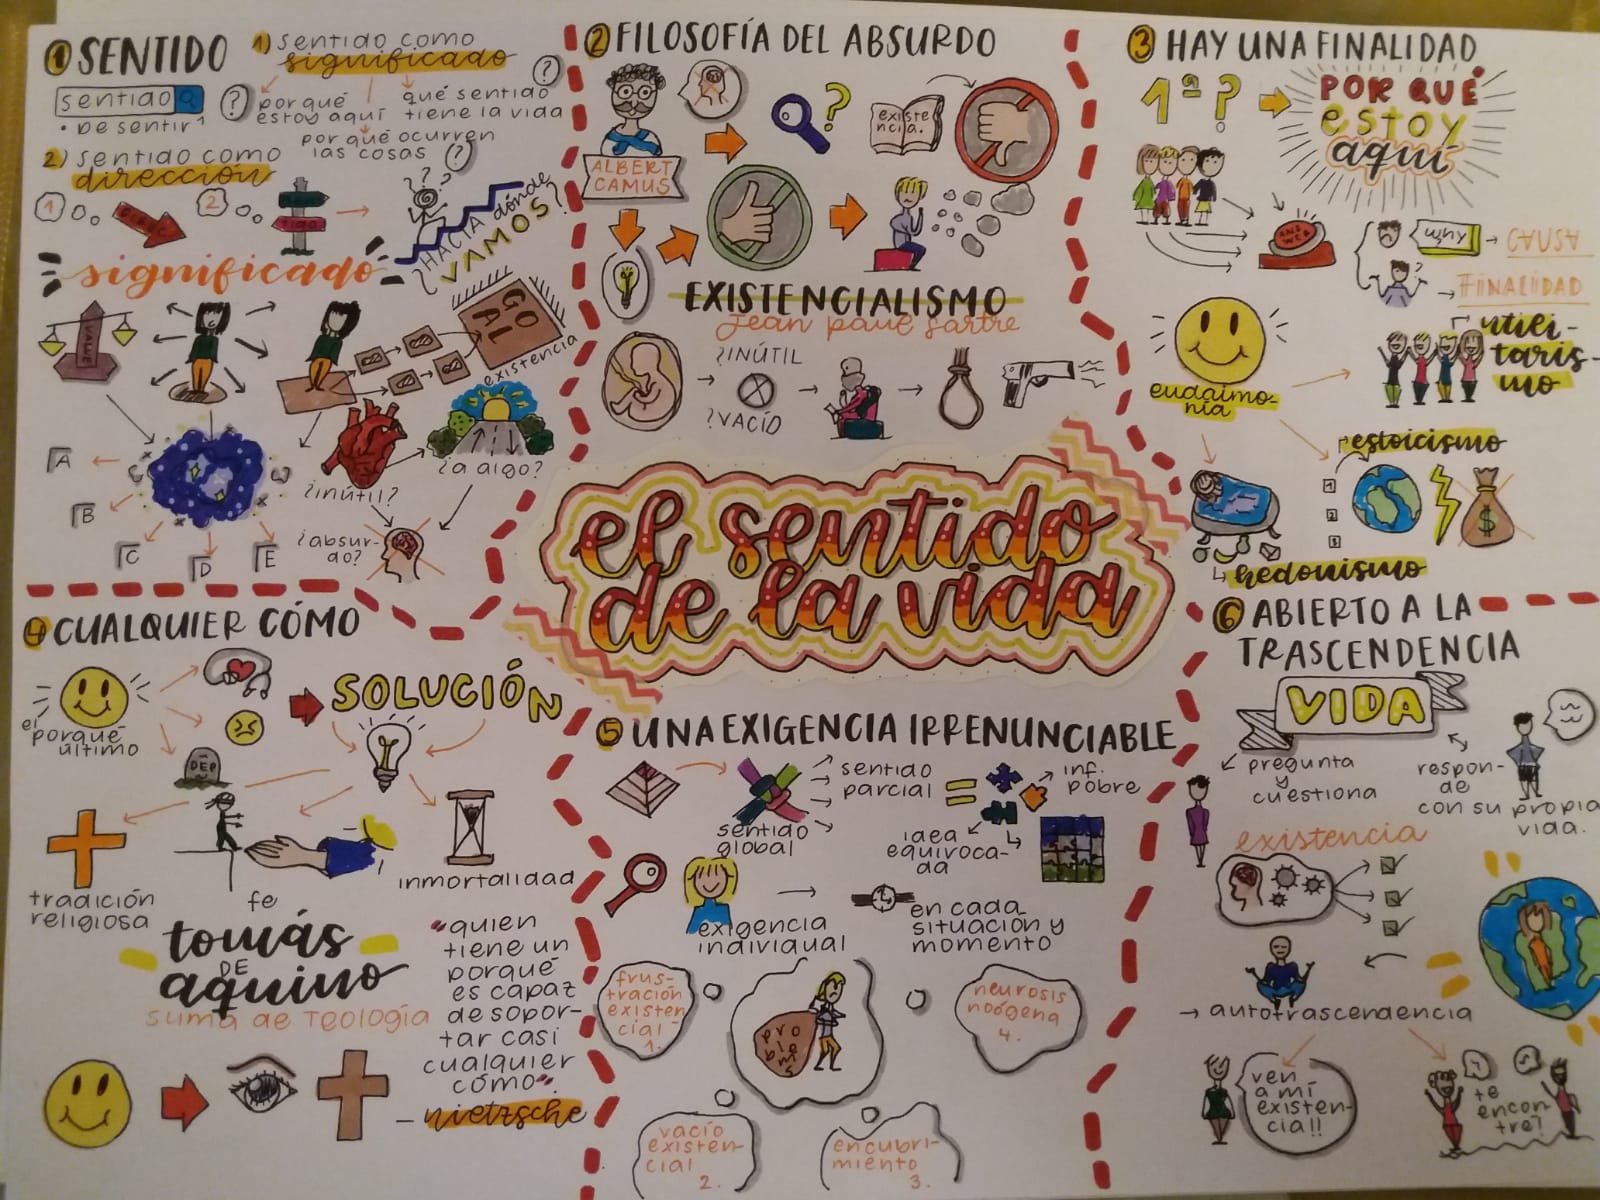 1 SENTIDO
sentido
• De sentir¹
1) sentido como
significado
?
?
por qué
estoy aquí
qué sentido
tiene la vida
por qué ocurren
las cosas
?
2) sentido como
dirección
1
2
???
¿HACIA dónde
VAMOS?
significado
VALUE
GOAL
existencia
A
B
C
D
E
¿inútil?
¿a algo?
¿absur-
do?
2 FILOSOFÍA DEL ABSURDO
ALBERT
CAMUS
?
existe
ncia.
EXISTENCIALISMO
Jean paul sartre
¿INÚTIL
?VACÍO
3 HAY UNA FINALIDAD
1ª?
POR QUÉ
estoy
aquí
ANS
WER
Why
CAUSA
?
FINALIDAD
eudaimo-
nia
utili-
taris-
mo
estoicismo
1
2
3
$
hedonismo
el sentido
de la vida
4 CUALQUIER CÓMO
el
porqué
último
DEP
SOLUCIÓN
tradición
religiosa
fe
inmortalidad
tomás
DE
aquino
suma de Teología
"quien
tiene un
porqué
es capaz
de sopor-
tar casi
cualquier
cómo".
- nietzsche
5 UNA EXIGENCIA IRRENUNCIABLE
sentido
parcial
sentido
global
=
inf.
pobre
idea
equivoca-
da
exigencia
individual
en cada
situación y
momento
frus-
tración
existen
cial
1.
pro
ble
mas
neurosis
noógena
4.
vacío
existen-
cial
2.
encubri-
miento
3.
6 ABIERTO A LA
TRASCENDENCIA
VIDA
pregunta
y
cuestiona
respon-
de
con su propia
vida.
existencia
→ autotrascendencia
ven
a mí
existen-
cia!!
te
encon-
tré?